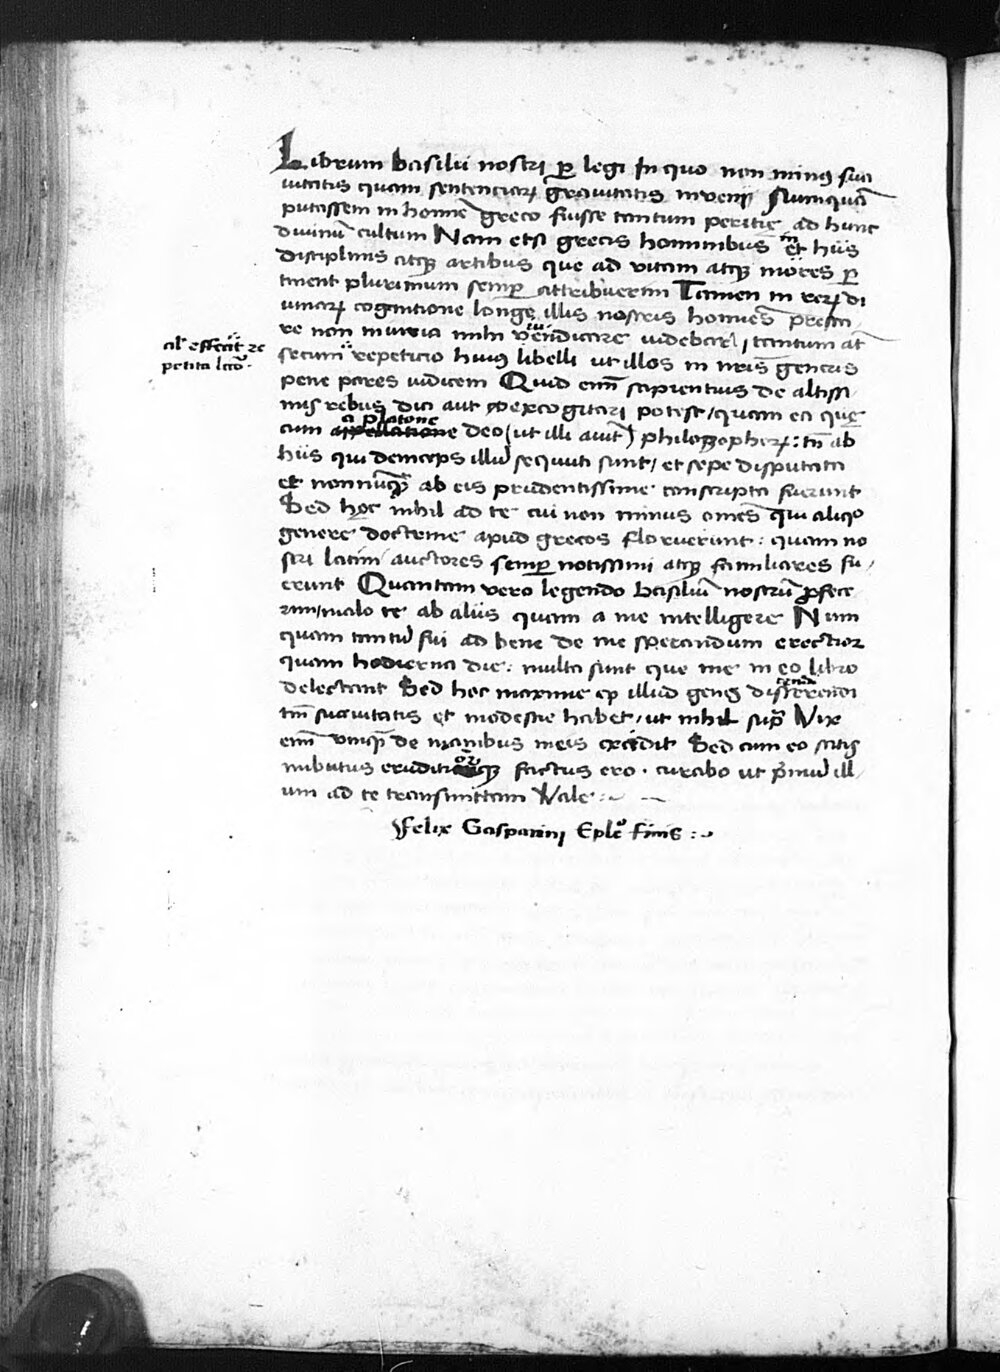 Librum basilii nostri ꝑ legi In quo non minꝰ sua
uitatis quam sentenciaꝝ grauitatis inveni Nunquā
putassem in homīe greco fuisse tantum peritię ad hunc
divinū cultum Nam etsi grecis hominibus in et hiis
disciplinis atqꝫ artibus que ad vitam atqꝫ mores ꝑ
tinent plurimum semꝑ attribuerim Tamen in reꝝ di
uinaꝝ cognitione longę illis nostris homīes presta
re non iniuria mihi vendicare videbar / tantum at̄
al' effecit re
petita lcō ·
secum repeticio huiꝰ libelli ut illos in nr̄is generis
pene pares iudicem Quid eni᷒ sapientius de altissi
mis rebus dici aut excogitari potest / quam ea quę
cum a platone deo (ut illi aiūt) philosophoꝝ : tū ab
hiis qui deinceps illū sequuti sunt / et sepe disputata
et nonnūqꝫ ab eis prudentissime conscripta fuerunt
Sed hęc nihil ad te cui non minus om̄es qui aliqo
genere doctrine apud grecos floruerunt : quam no
stri latini auctores semꝑ notissimi atqꝫ familiares fu /
erunt Quantam vero legendo basiliū nostrū ꝓfece
rim / malo te ab aliis quam a me intelligere Nun
quam tantū fui ad bene de me sperandum erectior
quam hodierna die : multa sunt que me in eo libro
delectant Sed hoc maxime ꝙ illud genꝰ disserendi
tm̄ suauitatis et modestie habet / ut nihil supᷓ Vix
eni᷒ vnqꝫ de manibus meis excidit Sed cum eo satis
imbutus eruditiorqꝫ factus ero · curabo ut p̄mū ill /
um ad te transmittam Vale :~
Felix Gasparini Eplē finis :~